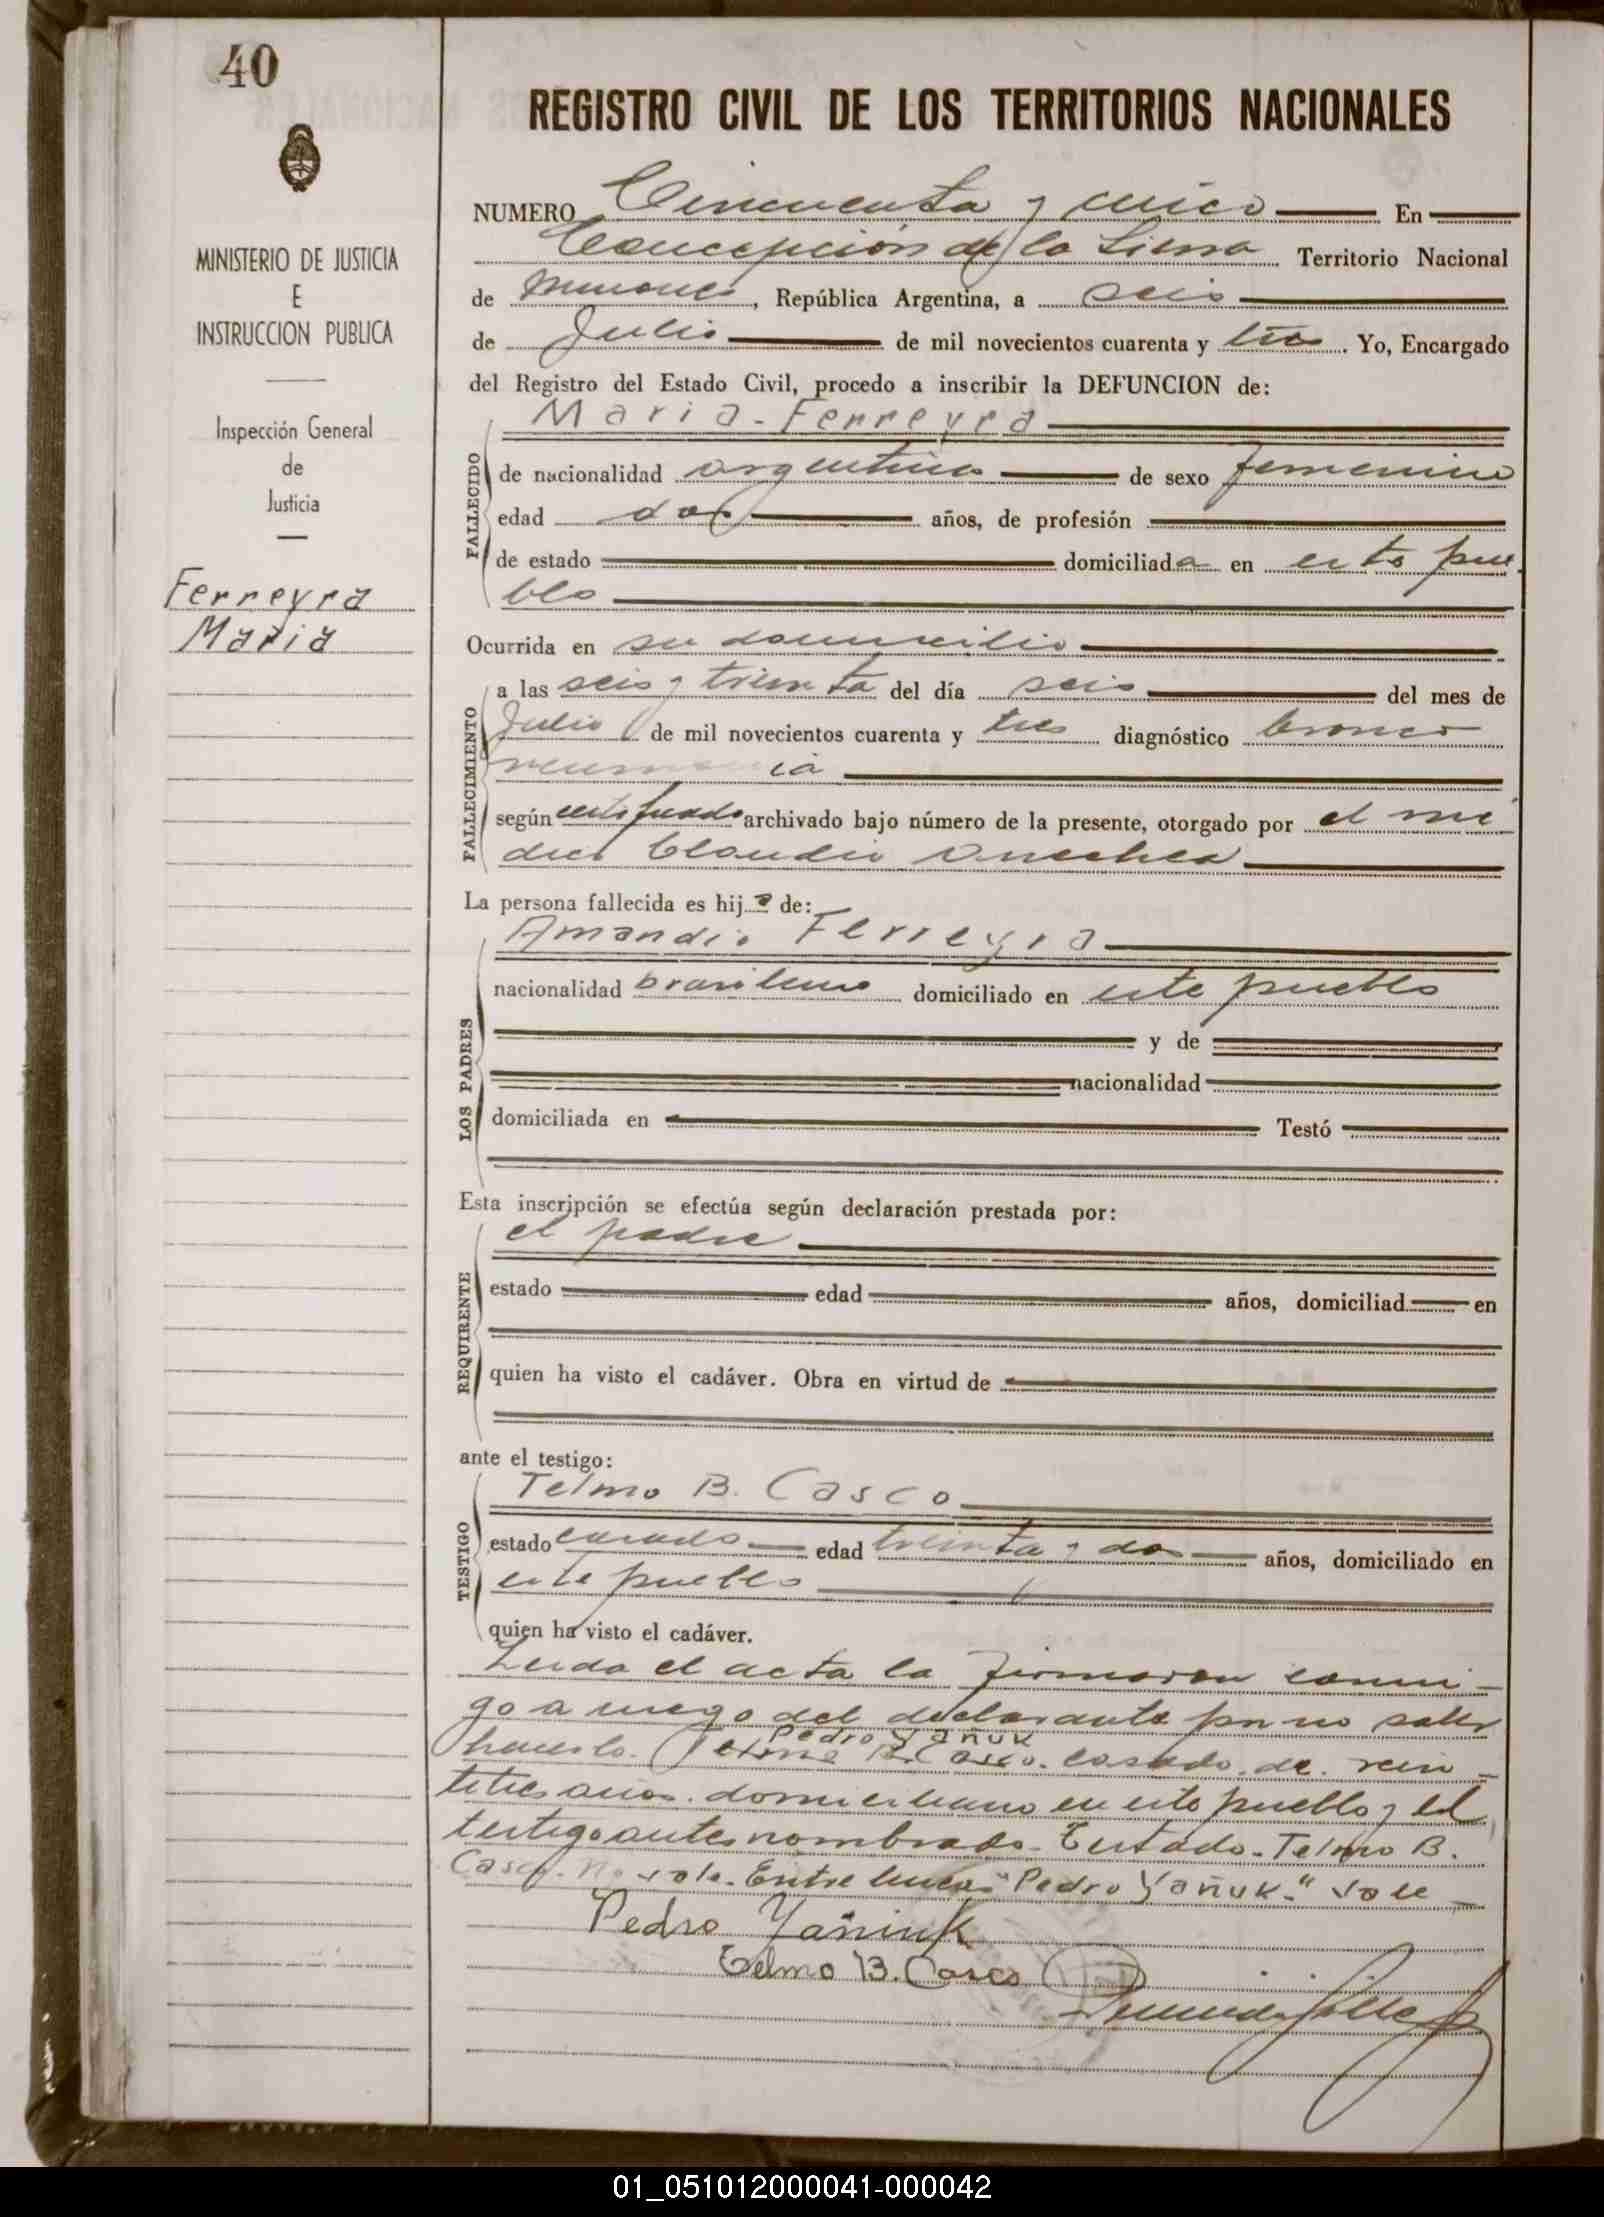 40
REGISTRO CIVIL DE LOS TERRITORIOS NACIONALES
MINISTERIO DE JUSTICIA
E
INSTRUCCION PUBLICA
Inspección General
de
Justicia
Ferreyra
Maria
NUMERO Cincuenta y cinco En
Concepción de la Sierra Territorio Nacional
de Misiones, República Argentina, a seis
de Julio de mil novecientos cuarenta y tres. Yo, Encargado
del Registro del Estado Civil, procedo a inscribir la DEFUNCION de:
Maria - Ferreyra
FALLECIDO
de nacionalidad argentina de sexo femenino
edad dos años, de profesión
de estado domiciliada en este pue-
blo
Ocurrida en su domicilio
FALLECIMIENTO
a las seis y treinta del día seis del mes de
Julio de mil novecientos cuarenta y tres diagnóstico bronco
neumonia
según certificado archivado bajo número de la presente, otorgado por el mé
dico Claudio
La persona fallecida es hija de:
LOS PADRES
Amandio Ferreyra
nacionalidad brasileno domiciliado en este pueblo
y de
nacionalidad
domiciliada en Testó
Esta inscripción se efectúa según declaración prestada por:
REQUIRENTE
el padre
estado edad años, domiciliad en
quien ha visto el cadáver. Obra en virtud de
ante el testigo:
TESTIGO
Telmo B. Casco
estado casado edad treinta y dos años, domiciliado en
este pueblo
quien ha visto el cadáver.
Leida el acta la firmaron conmi-
go a ruego del declarante por no saber
Pedro Yañuk
hacerlo. Telmo B. Casco. casado. de. vein-
titres años. domiciliado en este pueblo y el
testigo antes nombrado - Testado - Telmo B.
Casco. No vale. Entre lineas "Pedro Yañuk-" vale
Pedro Yañiuk
Telmo B. Casco
01_051012000041-000042